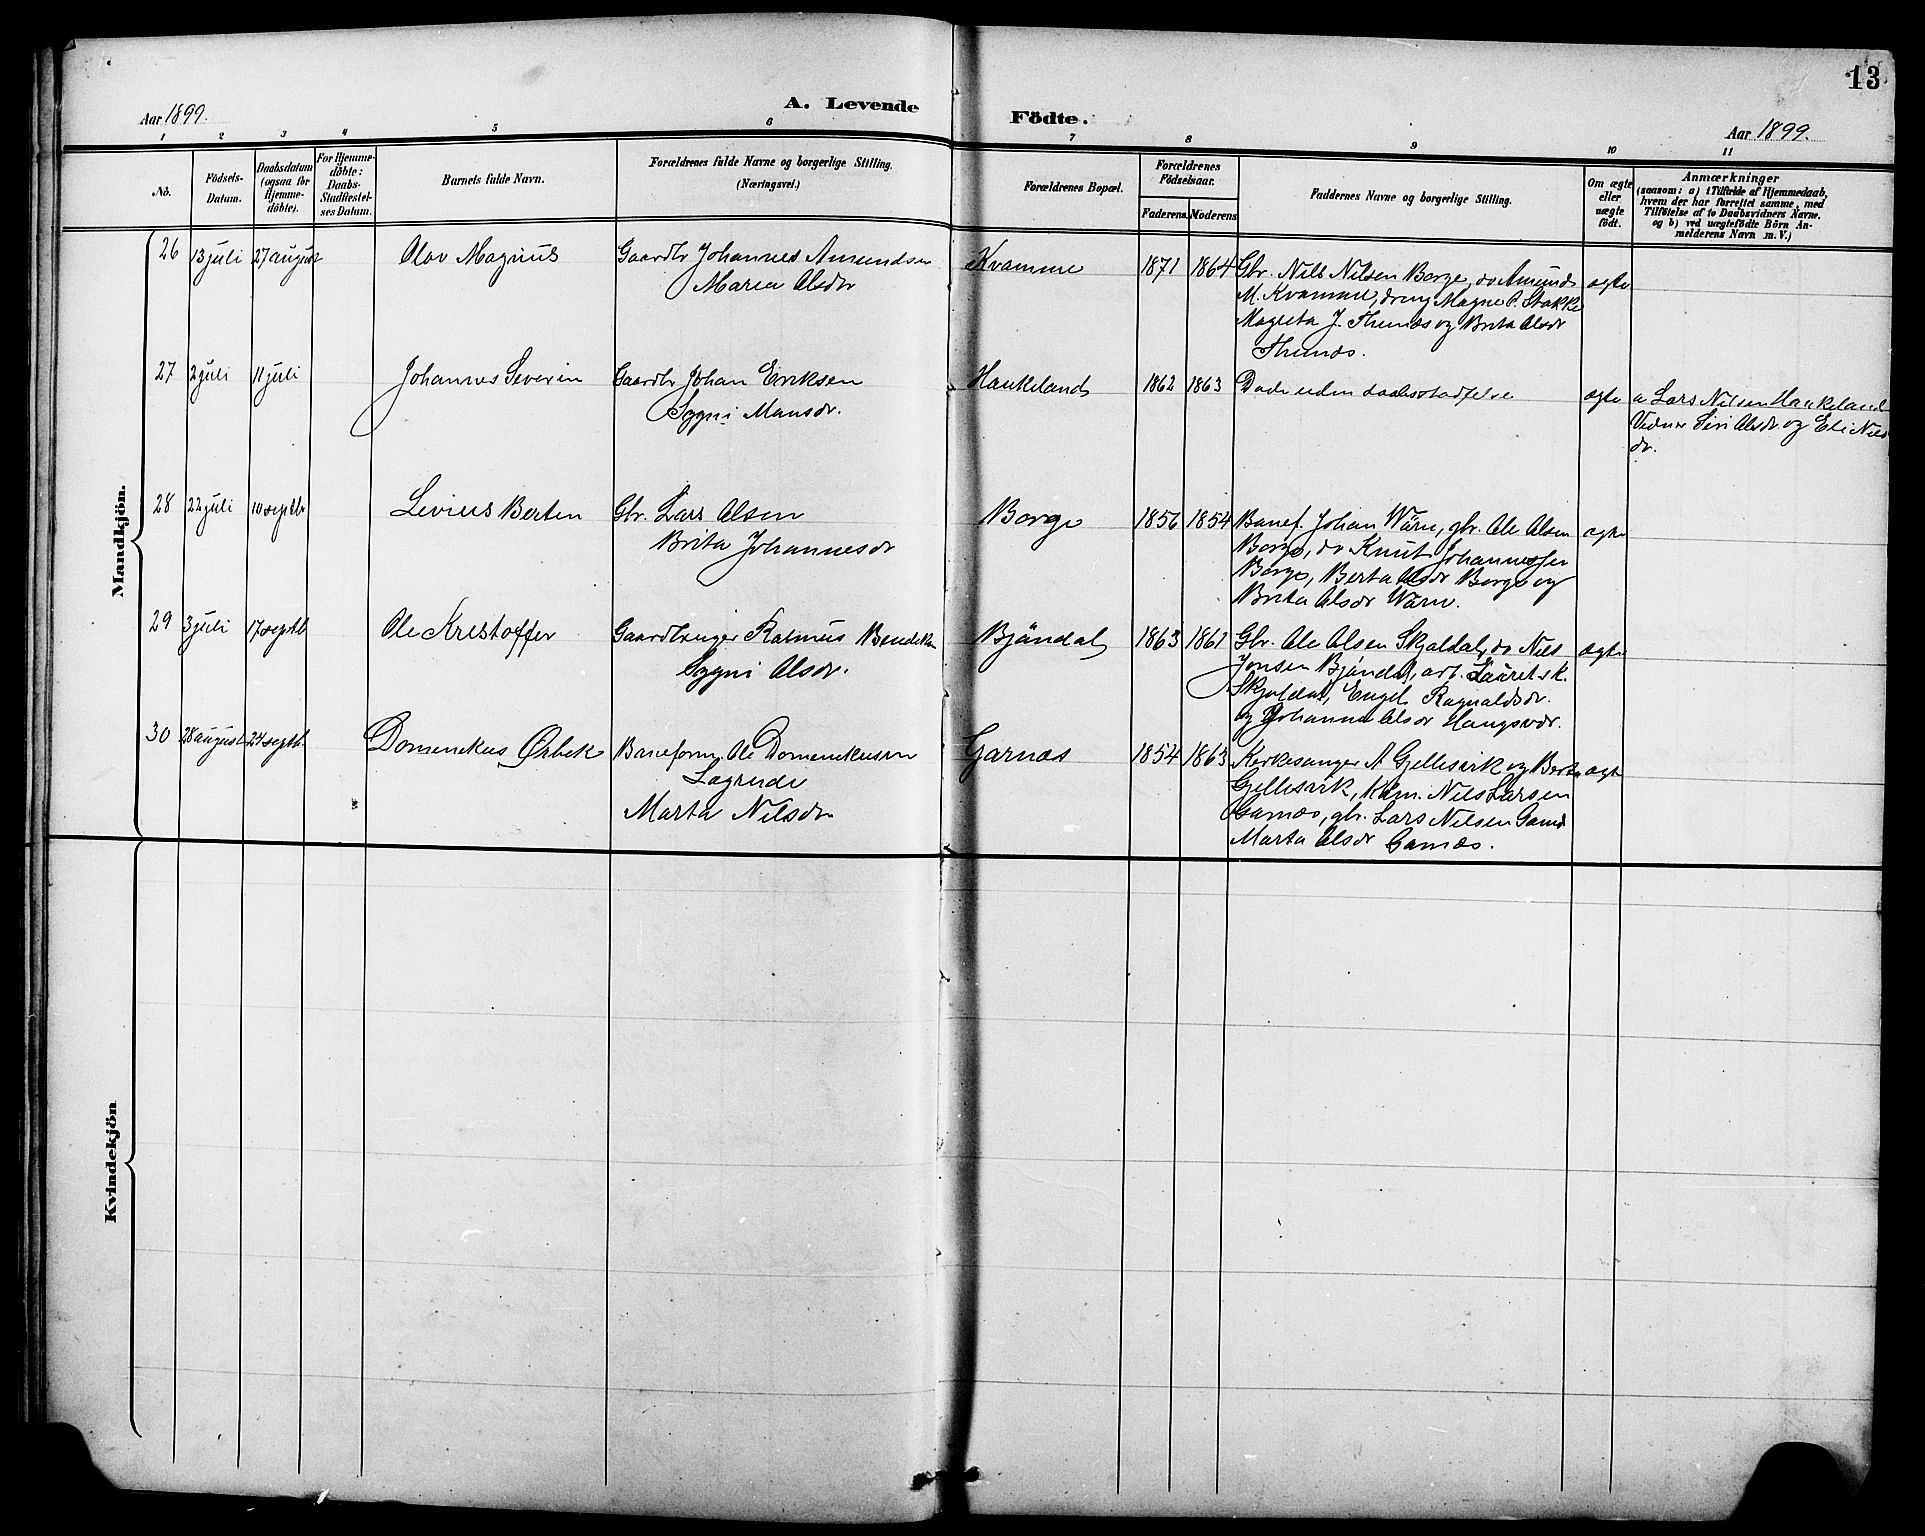 13
Aar 1899.
A. Levende
Födte.
Aar 1899.
1 2 3 4 5 6 7 8 9 10 11
No.
Födsels-
Datum.
Daabsdatum
(ogsaa for
Hjemme-
döbte).
For Hjemme-
döbte:
Daabs-
Stadfæstel-
ses Datum.
Barnets fulde Navn.
Forældrenes fulde Navne og borgerlige Stilling.
(Næringsvei.)
Forældrenes Bopæl.
Forældrenes
Födselsaar.
Faderens.
Moderens
Faddernes Navne og borgerlige Stilling.
Om ægte
eller
uægte
födt.
Anmærkninger
(saasom: a) i Tilfælde af Hjemmedaab,
hvem der har forrettet samme, med
Tilföielse af to Daabsvidners Navne.
og b) ved uægtefödte Börn An-
melderens Navn m. V.)
Mandkjön.
26 13 juli 27 august Olav Magnus Gaardbr Johannes Amundsen Kvamme 1871 1864 Gbr. Nils Nilsen Borge, do Amund ægte
Maria Olsdr
M. Kvamme, dreng Magne P. Stokke
Magreta J. Thunes og Brita Olsdr
Thunes.
27 2 juli 11 juli Johannes Severin Gaardbr Johan Eriksen Haukeland 1862 1863 Døde uden daabsstadfelse ægte a Lars Nilsen Haukeland
Sygni Mansdr.
Vidner Siri Olsdr og Eli Nils
dr.
28 22 juli 10 septbr Levius Berten Gbr. Lars Olsen Borge 1856 1854 Banef. Johan Wärn, gbr. Ole Olsen ægte
Brita Johannesdr
Borge, do Knut Johannessen
Borge, Berta Olsdr Borge og
Brita Olsdr Wärn.
29 3 juli 17 septb Ole Kristoffer Gaardbruger Rasmus Bendiksen Bjöndal 1863 1861 Gbr. Ole Olsen Skjoldal, do Nils ægte
Sygni Olsdr.
Jonsen Bjöndal, arb. Laurits K.
Skjoldal, Engel Ragnaldsdr.
og Johanna Olsdr
30 28 august 24 septb. Domenekus Ørbek Baneform. Ole Domenekusen Garnæs 1854 1863 Kirkesanger A Gjellesvik og Berta ægte
Marta Nilsdr
Gjellesvik, Nils Larsen
Garnæs, gbr. Lars Nilsen
Marta Olsdr Garnæs.
Kvindekjön